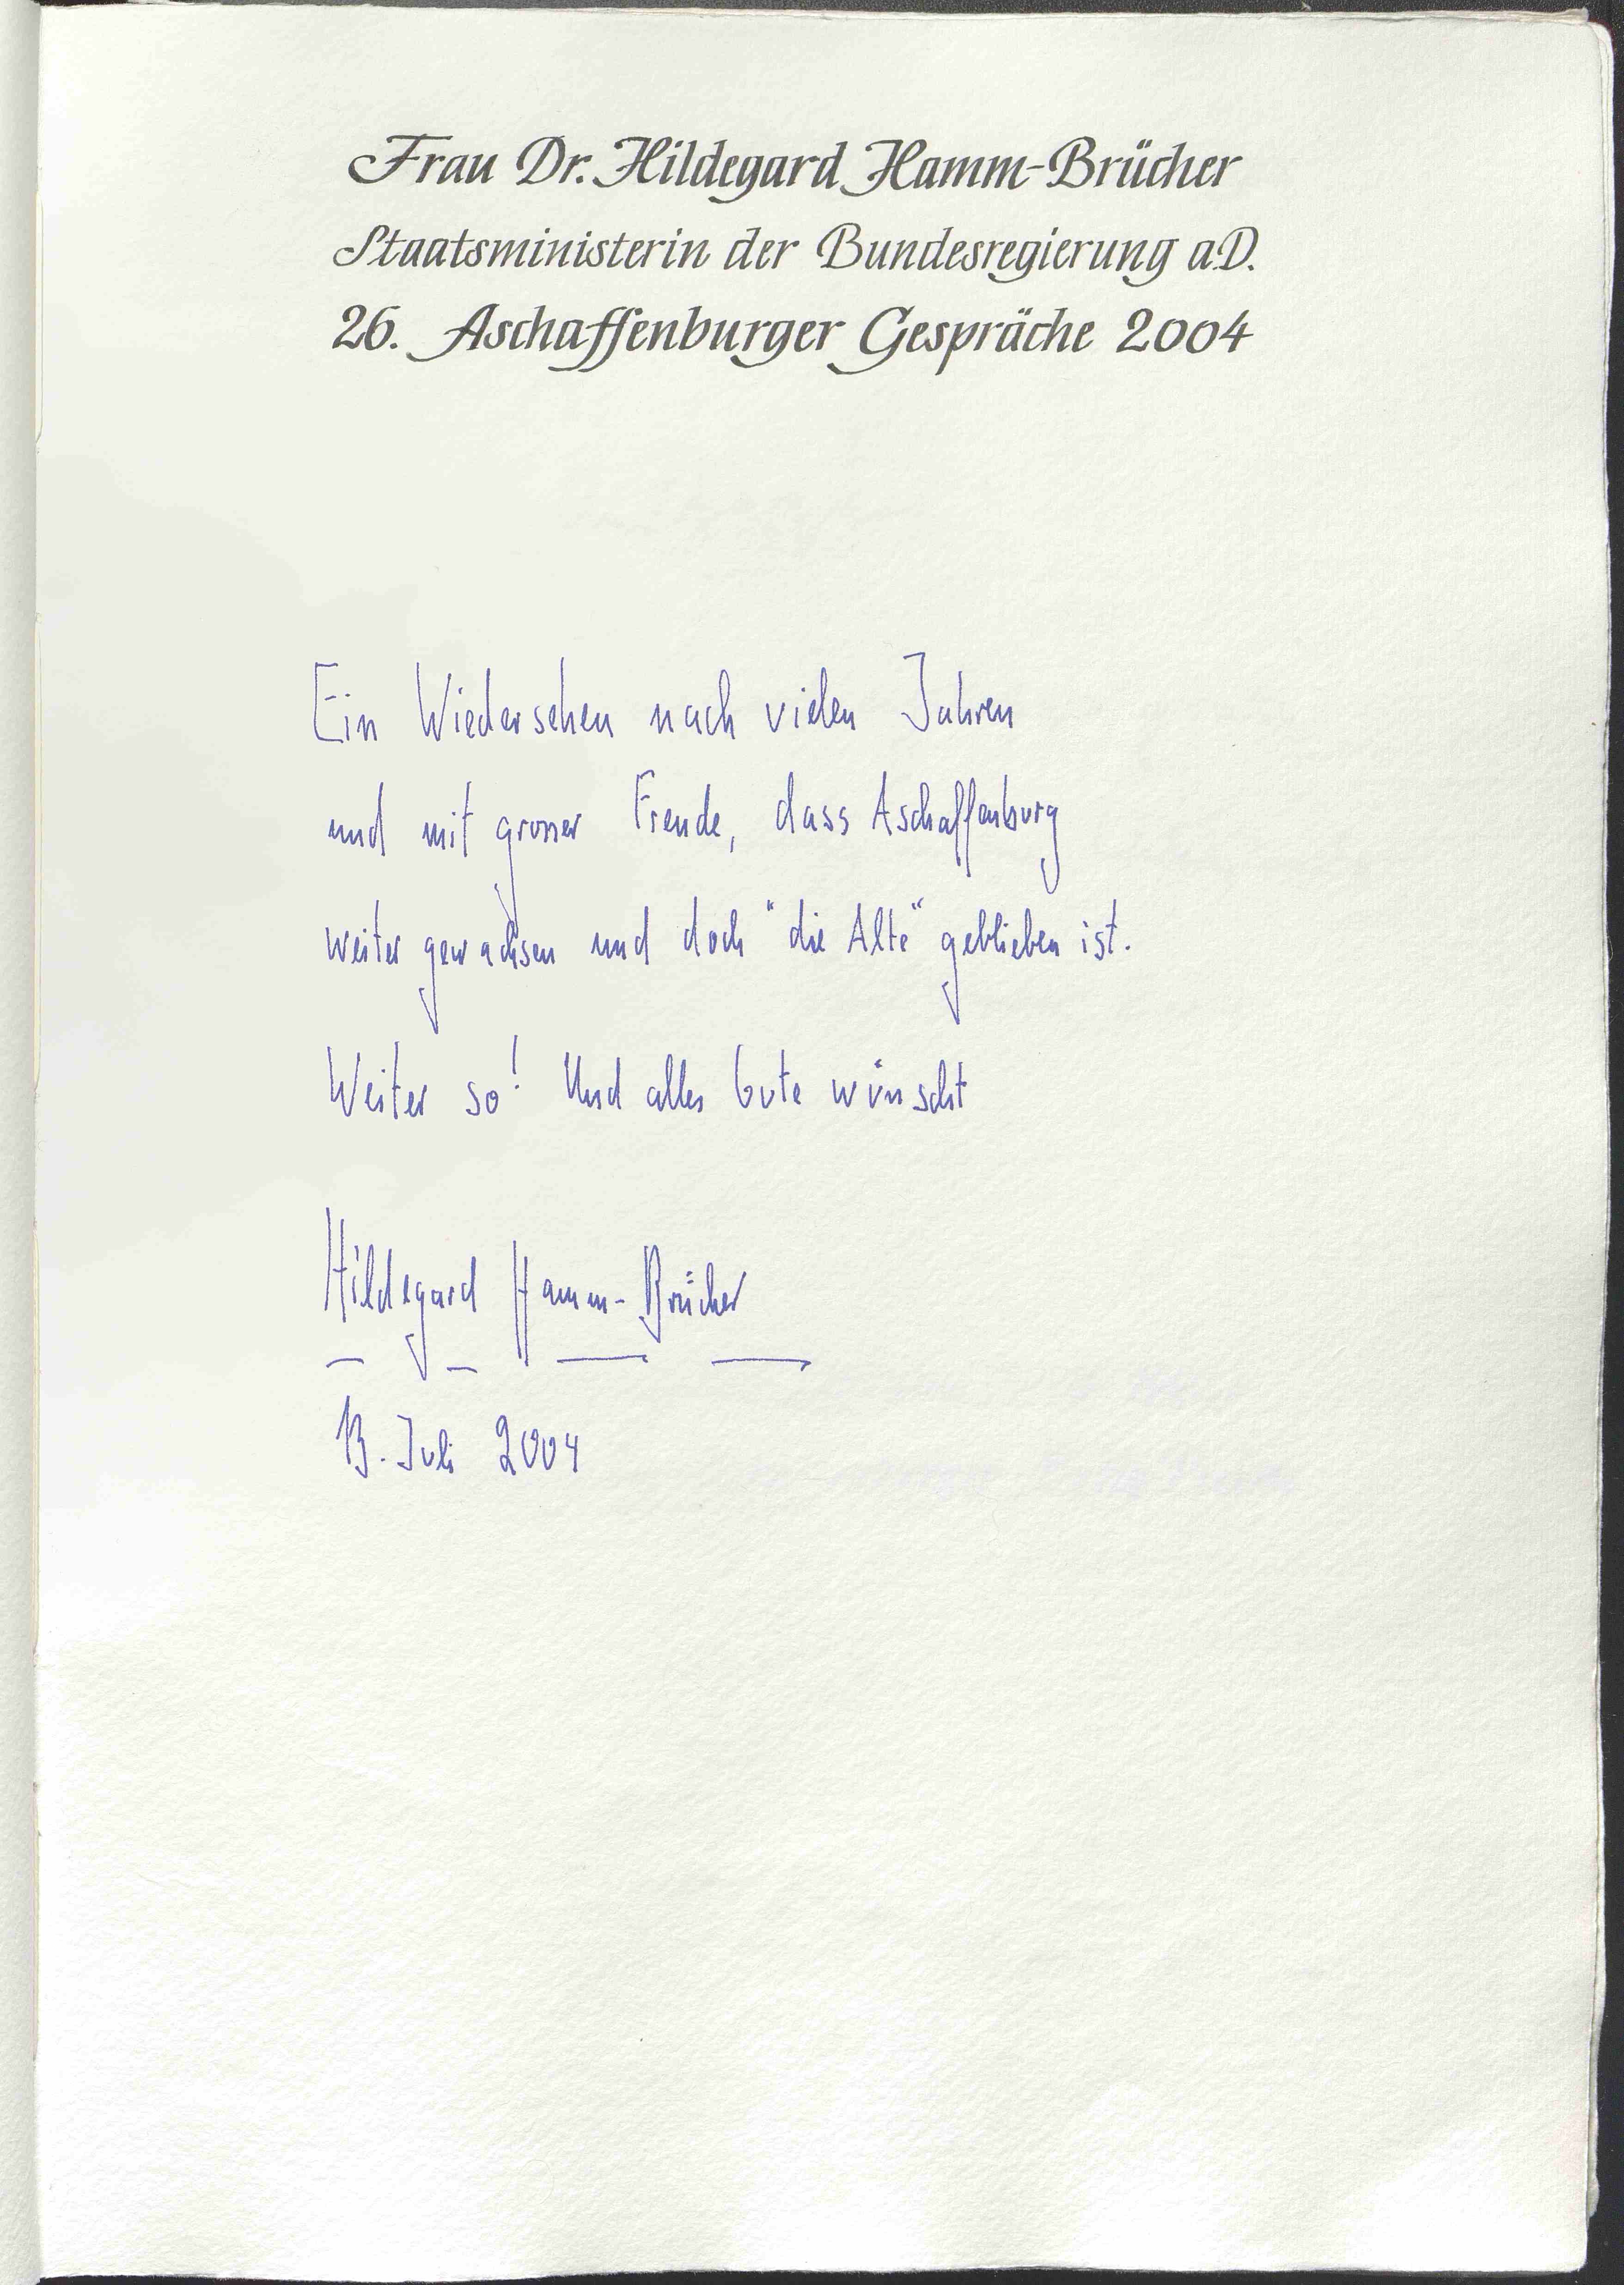 Frau Dr. Hildegard Hamm-Brücher
Staatsministerin der Bundesregierung a.D.
26. Aschaffenburger Gespräche 2004
Ein Wiedersehen nach vielen Jahren
und mit grosser Freude, dass Aschaffenburg
weiter gewachsen und doch "die Alte" geblieben ist.
Weiter so! Und alles Gute wünscht
Hildegard Hamm-Brücher
13. Juli 2004